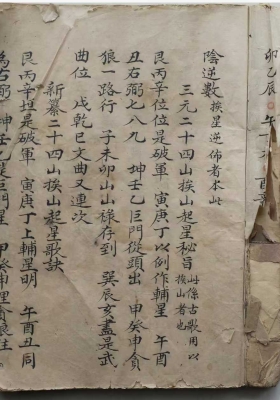 陰逆數 挨星逆佈者本此
三元二十四山挨山起星秘旨 此係古歌用以挨山者也
艮丙辛位位是破軍 寅庚丁以例作輔星 午酉
丑右弼七八九 坤壬乙巨門從頭出 甲癸申貪
狼一路行 子未卯山山祿存到 巽辰亥盡是武
曲位 戌乾巳文曲又連次
新纂二十四山挨山起星歌訣
艮丙辛坦是破軍 寅庚丁上輔星明 午酉丑同
為右弼 坤壬乙是巨門星 甲癸申里貪狼住
卯乙辰 午